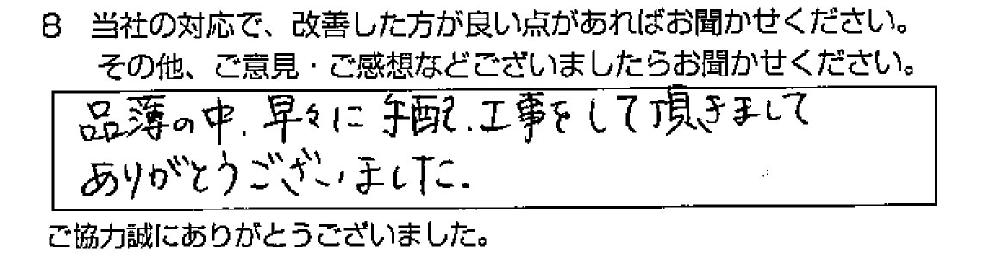 8 当社の対応で、改善した方が良い点があればお聞かせください。
その他、ご意見・ご感想などございましたらお聞かせください。
品薄の中、早々に手配、工事をして頂きまして
ありがとうございました。
ご協力誠にありがとうございました。